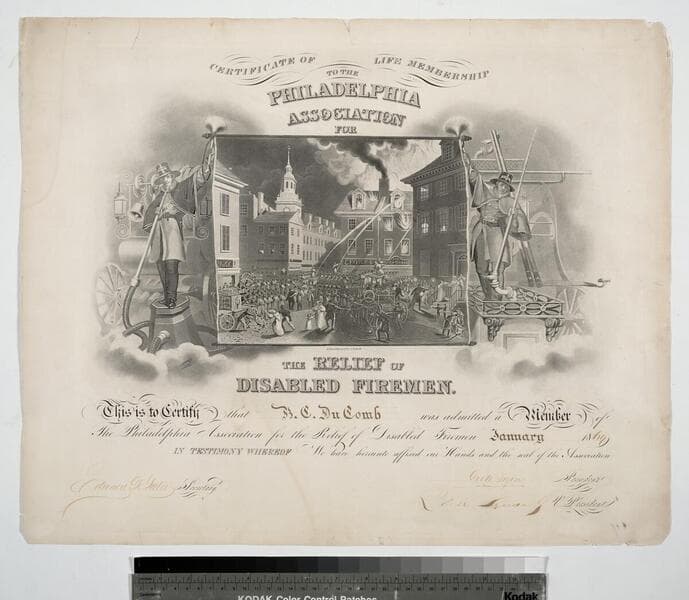 CERTIFICATE OF LIFE MEMBERSHIP
TO THE
PHILADELPHIA
ASSOCIATION
FOR
THE RELIEF OF
DISABLED FIREMEN.
This is to Certify that B. C. DuComb was admitted a Member of
The Philadelphia Association for the Relief of Disabled Firemen January 18
IN TESTIMONY WHEREOF We have hereunto affixed our Hands and the seal of the Association
President
Secretary
V. President
KODAK Color Control Patches
Kodak